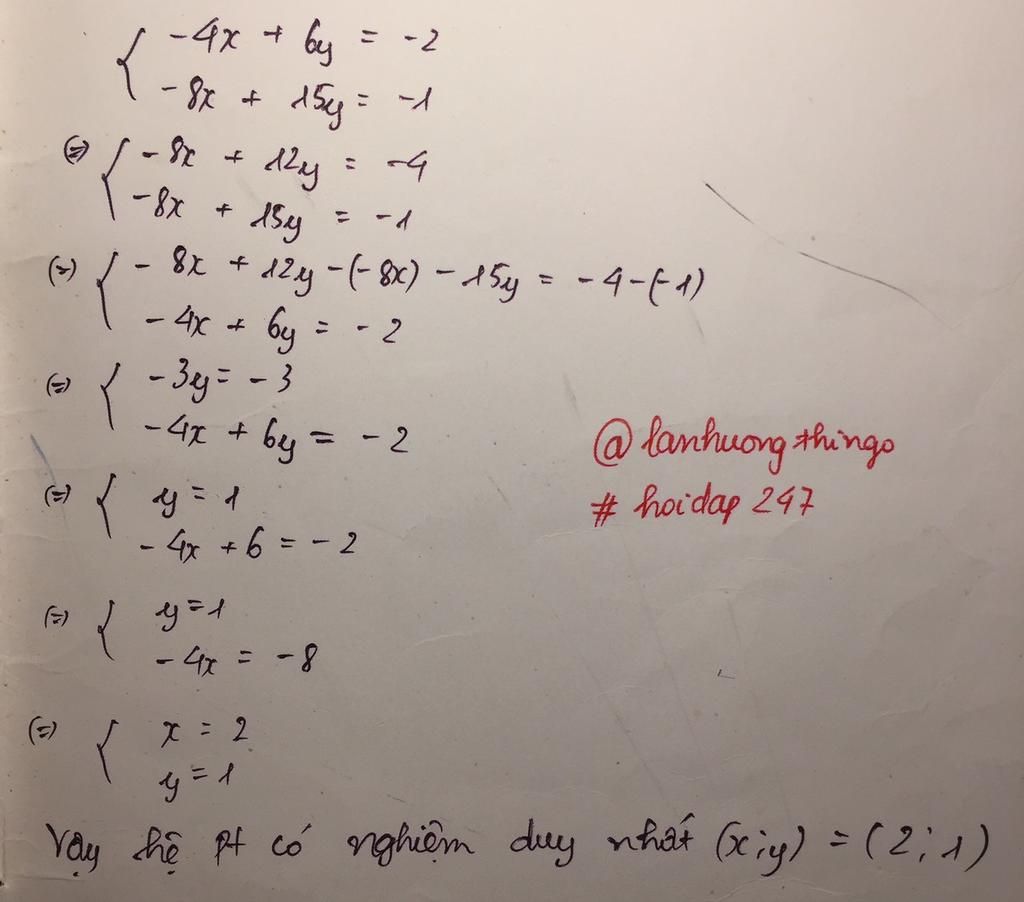 { -4x + 6y = -2
-8x + 15y = -1
(=) { -8x + 12y = -4
-8x + 15y = -1
(=) { -8x + 12y -(-8x) - 15y = -4-(-1)
-4x + 6y = -2
(=) { -3y = -3
-4x + 6y = -2
(=) { y = 1
-4x + 6 = -2
(=) { y = 1
-4x = -8
(=) { x = 2
y = 1
Vậy hệ pt có nghiệm duy nhất (x;y) = (2;1)
@lanhuongthingo
# hoidap 247